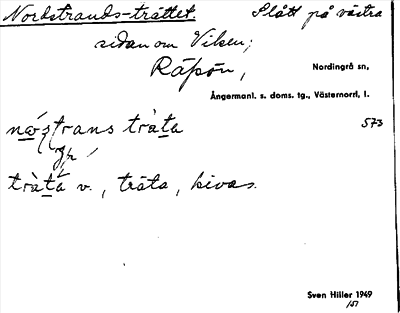 Nordstrands-trättet. Slått på västra
sidan om Vilsen;
Räpön, Nordingrå sn,
Ångermanl. s. doms. tg., Västernorrl, l.
trans trä̀ta 573
trä̀tá v., träta, kivas.
Sven Hiller 1949
/57